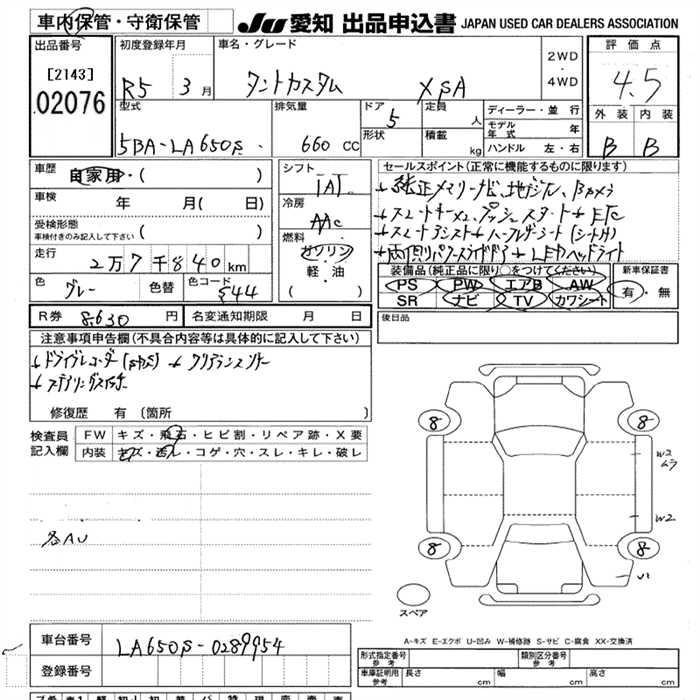 車内保管・守衛保管
JU 愛知 出品申込書 JAPAN USED CAR DEALERS ASSOCIATION
出品番号
[2143]
02076
初度登録年月
R5 3 月
車名・グレード
タントカスタム
2WD
・
4WD
評価点
4.5
型式
5BA-LA650S
排気量
660 cc
ドア
5
形状
定員
人
積載
kg
ディーラー・並 行
モデル年式 年
ハンドル 左・右
外装 内装
B B
車歴
自家用・( )
車検
年 月( 日)
受検形態
車検付きのみ記入して下さい ( )
走行
2万7千840km
色
グレー
色替
色コード
S44
シフト
IAT
冷房
AAC
燃料
ガソリン
軽・油
( )
セールスポイント(正常に機能するものに限ります)
純正メモリーナビ、地デジル、Bカメラ
スマートキー×2、プッシュスタート ETC
両側パワースライドドア LEDヘッドライト
装備品(純正品に限り○をつけてください)
PS PW エアB AW
SR ナビ TV カワシート
新車保証書
有・無
R券 8630 円 名変通知期限 月 日
後日品
注意事項申告欄(不具合内容等は具体的に記入して下さい)
ドライブレコーダー クリアランスソナー
修復歴 有 (箇所 )
検査員
記入欄
FW キズ・飛石・ヒビ割・リペア跡・X要
内装 キズ・汚レ・コゲ・穴・スレ・キレ・破レ
8 8
W2
ムラ
W2
8 8
スペア
A-キズ E-エクボ U-凹み W-補修跡 S-サビ C-腐食 XX-交換済
車台番号 LA650S-0289954
登録番号
形式指定番号
参考
類別区分番号
参考
車庫証明用
参考
長さ cm 幅 cm 高さ cm